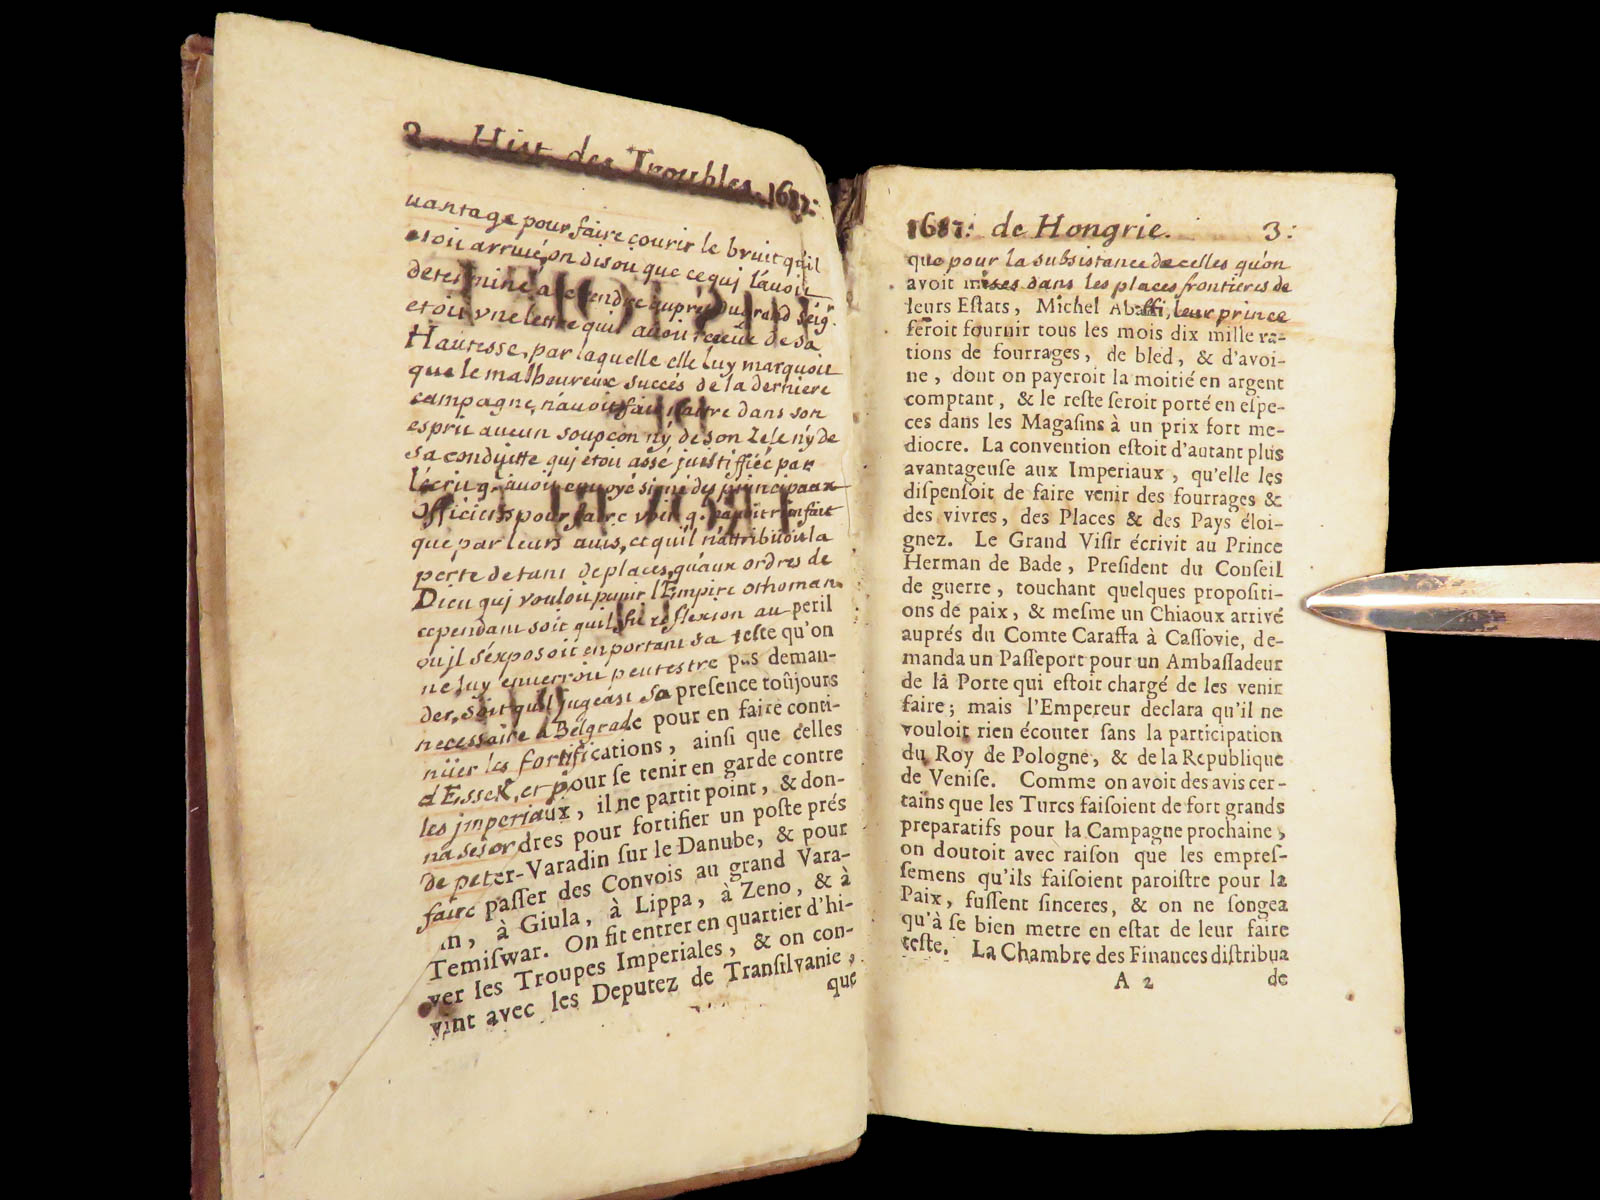 2. Hist. des Troubles. 1687:
uantage pour faire courir le bruit qu'il
etoit arriué, on disoit que ce qui l'auoit
determiné a se rendre aupres du grand seigr.
etoit vne lettre quil auoit receue de sa
Hautesse, par laquelle elle luy marquoit
que le malheureux succés de la derniere
campagne, n'auoit fait naitre dans son
esprit aucun soupcon n'y de son Zele n'y de
sa conduitte qui etoit assé justiffiée par
l'écrit q. auoit enuoyé signé des principaux
officiers pour faire voir q. n'auoit rien fait
que par leurs auis, et qu'il n'attribüoit la
perte de tant de places, qu'aux ordres de
Dieu qui vouloit punir l'Empire othoman.
cependant soit quil fit reflexion au peril
ou jl s'exposoit en portant sa teste qu'on
ne luy enuerroit peutestre pas deman-
der, soit quil jugeast sa presence toûjours
necessaire a Belgrade pour en faire conti-
nüer les fortifications, ainsi que celles
d'EsseK, et pour se tenir en garde contre
les jmperiaux, il ne partit point, & don-
na ses ordres pour fortifier un poste prés
de peter-Varadin sur le Danube, & pour
faire passer des Convois au grand Vara-
in, à Giula, à Lippa, à Zeno, & à
Temiswar. On fit entrer en quartier d'hi-
ver les Troupes Imperiales, & on con-
vint avec les Deputez de Transilvanie,
que
1687: de Hongrie. 3:
que pour la subsistance de celles qu'on
avoit mises dans les places frontieres de
leurs Estats, Michel Abaffi, leur prince
feroit fournir tous les mois dix mille ra-
tions de fourrages, de bled, & d'avoi-
ne, dont on payeroit la moitié en argent
comptant, & le reste seroit porté en espe-
ces dans les Magasins à un prix fort me-
diocre. La convention estoit d'autant plus
avantageuse aux Imperiaux, qu'elle les
dispensoit de faire venir des fourrages &
des vivres, des Places & des Pays éloi-
gnez. Le Grand Visir écrivit au Prince
Herman de Bade, President du Conseil
de guerre, touchant quelques propositi-
ons de paix, & mesme un Chiaoux arrivé
auprés du Comte Caraffa à Cassovie, de-
manda un Passeport pour un Ambassadeur
de la Porte qui estoit chargé de les venir
faire; mais l'Empereur declara qu'il ne
vouloit rien écouter sans la participation
du Roy de Pologne, & de la Republique
de Venise. Comme on avoit des avis cer-
tains que les Turcs faisoient de fort grands
preparatifs pour la Campagne prochaine,
on doutoit avec raison que les empres-
semens qu'ils faisoient paroistre pour la
Paix, fussent sinceres, & on ne songea
qu'à se bien metre en estat de leur faire
teste. La Chambre des Finances distribua
A 2 de